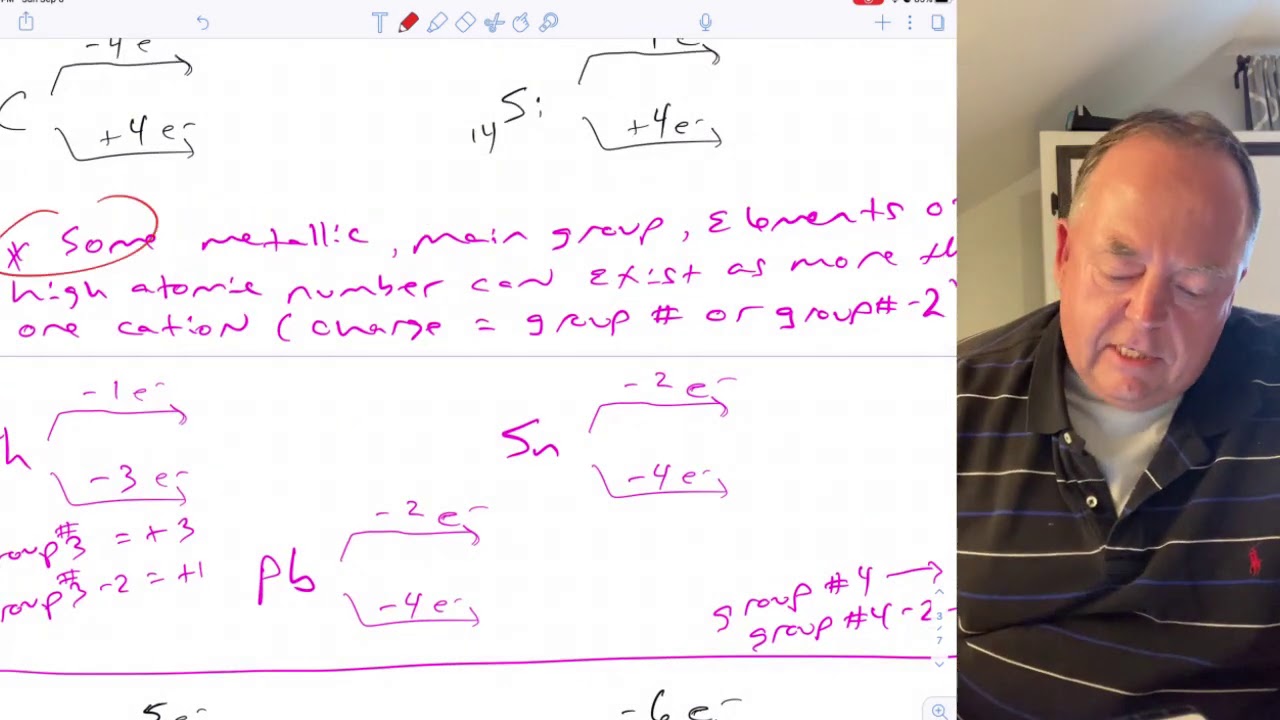 -4 e
C
+4 e-
14 Si
+4e-
* Some metallic, main group, Elements o
high atomic number can Exist as more th
one cation (charge = group # or group# -2)
-1 e-
-3 e-
-2 e-
Sn
-4 e-
-2 e-
Pb
-4 e-
roup #3 = +3
roup #3 -2 = +1
group #4 →
group #4 -2
3
/
7
5 e-
-6 e-